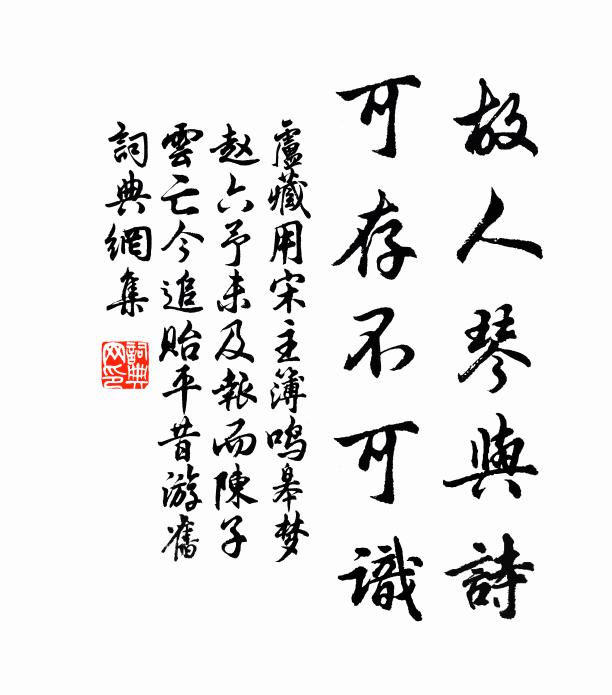 故人琴與詩
可存不可識
盧藏用宋主簿鳴皋梦
赵六予未及報而陳子
雲亡今追貽平昔游舊
詞典網集
詞典网印